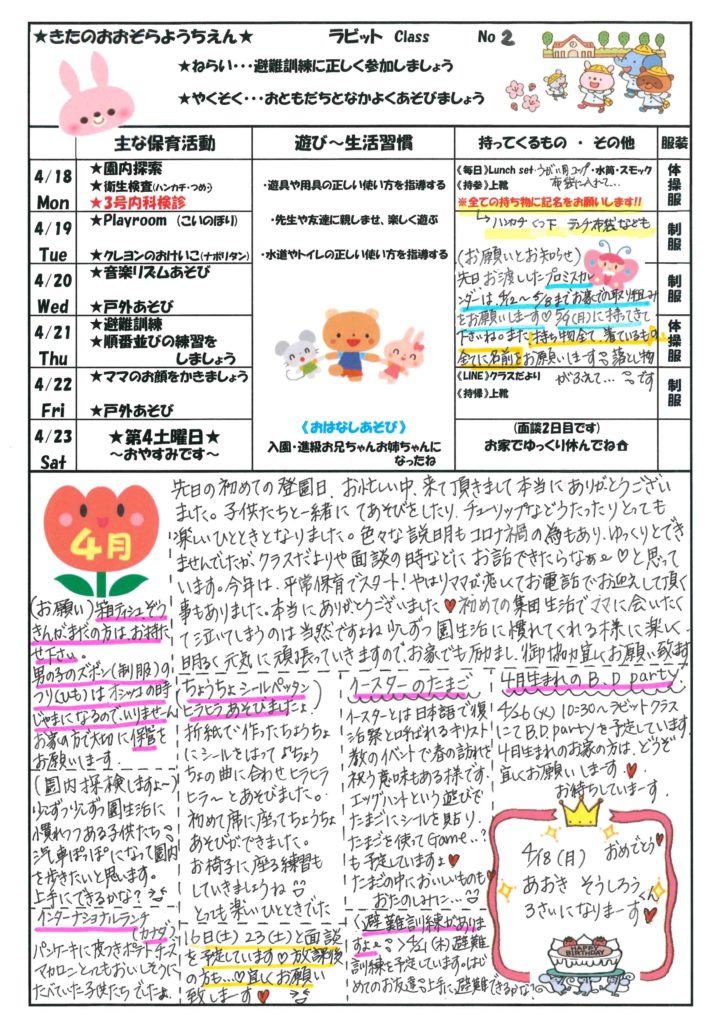 ★きたのおおぞらようちえん★ ラビット Class No 2
★ねらい・・・避難訓練に正しく参加しましょう
★やくそく・・・おともだちとなかよくあそびましょう
主な保育活動 遊び～生活習慣 持ってくるもの ・ その他 服装
4/18
Mon
★園内探索
★衛生検査(ハンカチ・つめ)
★3号内科検診
4/19
Tue
★Playroom (こいのぼり)
★クレヨンのおけいこ(ナポリタン)
4/20
Wed
★音楽リズムあそび
★戸外あそび
4/21
Thu
★避難訓練
★順番並びの練習を
しましょう
4/22
Fri
★ママのお顔をかきましょう
★戸外あそび
4/23
Sat
★第4土曜日★
～おやすみです～
・遊具や用具の正しい使い方を指導する
・先生や友達に親しませ、楽しく遊ぶ
・水道やトイレの正しい使い方を指導する
《おはなしあそび》
入園・進級お兄ちゃんお姉ちゃんに
なったね
《毎日》Lunch set うがい用コップ・水筒・スモック
《持参》上靴 布袋に入れて…
※全ての持ち物に記名をお願いします!!
ハンカチ くつ下 ランチ布袋なども
(お願いとお知らせ)
先日お渡ししたプロミスカレ
ンダーは、4/2～5/8までお家での取り組み
をお願いしまーす♡5/9(月)に持ってきて
下さいね。また持ち物全て、着ているもの
全てに名前をお願いします 落とし物
《LINE》クラスだより がふえて… です
《持帰》上靴
(面談2日目です)
お家でゆっくり休んでね
体操服
制服
制服
体操服
制服
4月
先日の初めての登園日、お忙しい中、来て頂きまして本当にありがとうござい
ました。子供たちと一緒に てあそびをしたり、チューリップなどうたったりとっても
楽しいひとときとなりました。色々な説明もコロナ禍の為もあり、ゆっくりとでき
ませんでしたが、クラスだよりや面談の時などに お話できたらなぁ～♡と思って
います。今年は、平常保育でスタート!やはりママが恋しくてお電話でお迎えして頂く
事もありました。本当にありがとうございました♥初めての集団生活でママに会いたく
て泣いてしまうのは当然ですよね少しずつ園生活に慣れてくれる様に楽しく
明るく元気に頑張っていきますのでお家でも励まし、御協力宜しくお願い致します
(お願い)箱ティシュ、ぞう
きんがまだの方は、お持た
せ下さい。
男の子のズボン(制服)の
つり(ひも)はオシッコの時
じゃまになるので、いりません
お家の方で大切に保管を
お願いします
(園内探検しますよ～)
少しずつ少しずつ園生活に
慣れつつある子供たち
汽車ぽっぽになって園内
を歩きたいと思います。
上手にできるかな?
インターナショナルランチ
(カナダ)
パンケーキに皮つきポテトチーズ
マカロニとってもおいしそうに
たべていた子供たちでしたよ。
ちょうちょシールペッタン
ヒラヒラあそびましたよ
折紙で作ったちょうちょ
にシールをはって♪ちょう
ちょの曲に合わせヒラヒラ
ヒラ～とあそびました。
初めて席に座ってちょうちょ
あそびができました。
お椅子に座る練習も
していきましょうね
とっても楽しいひとときでした
16日(土) 23(土)と面談
を予定しています♡放課後
の方も…♡宜しくお願い
致しまーす♡
イースターのたまご
イースターとは日本語で復
活祭と呼ばれるキリスト
教のイベントで春の訪れを
祝う意味もある様です。
エッグハントという遊びで
たまごにシールを貼り、
たまごを使ってGame‥?
も予定していますよ♥
たまごの中においしいものも
おたのしみに…
(避難訓練がありま
すよ～ 4/21(木)避難
訓練を予定しています。はじ
めてのお友達も上手に避難できるかな?
4月生まれのB.D party
4/26(火) 10:30～ラビットクラス
にてB.D.partyを予定しています
4月生まれのお家の方は、どうぞ
宜しくお願いしまーす♥
お待ちしていまーす
4/18(月) おめでとう
あおき そうしろうくん
3さいになりまーす
HAPPY BIRTHDAY